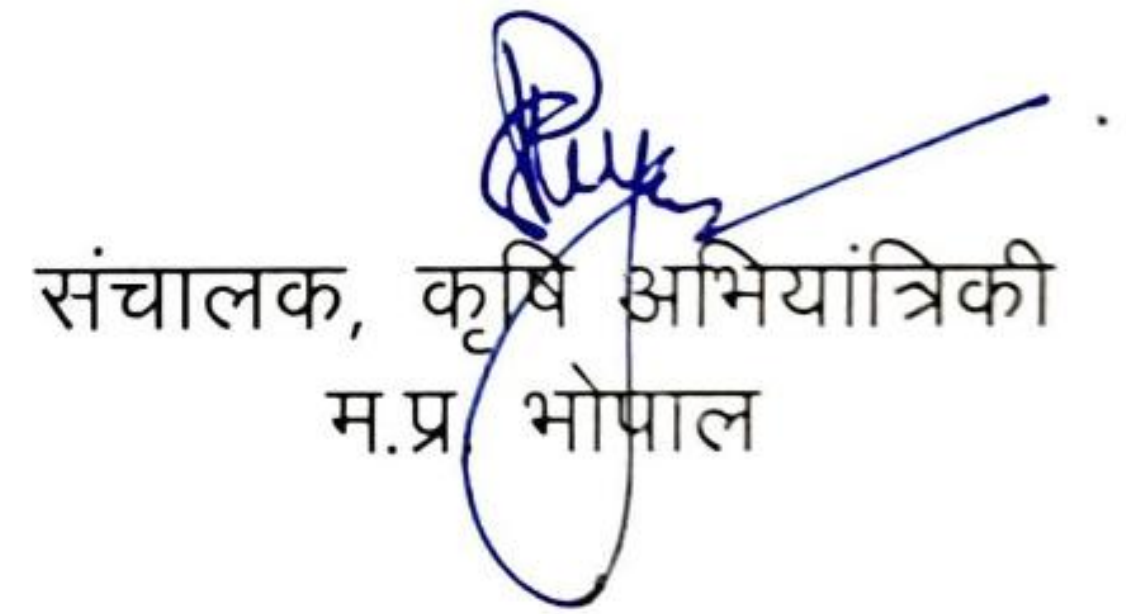 संचालक, कृषि अभियांत्रिकी
म.प्र. भोपाल